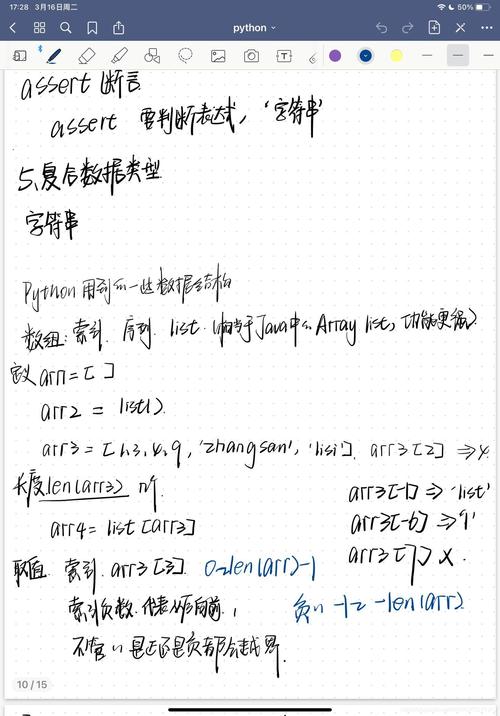 17:28 3月16日周二
50%
python
assert 断言
assert 要判断表达式, '字符串'
5、复合数据类型
字符串
Python 用到的一些数据结构
数组:索引. 序列. list. 相当于Java中的Array list, 功能更强)
定义 arr1 = [ ]
arr2 = list().
arr3 = [1,3,4,9,'zhangsan','lisi']. arr3[2] ⇒ 4
长度len(arr3) 个
arr3[-1] ⇒ 'list'
arr4 = list[arr3]
arr3[-6] ⇒ '1'
arr3[7] ×.
取值. 索引. arr3[3]. 0~len(arr)-1
索引负数. 代表从后向前,
负的 -1~ -len(arr)
不管是正还是负都会越界.
10 / 15